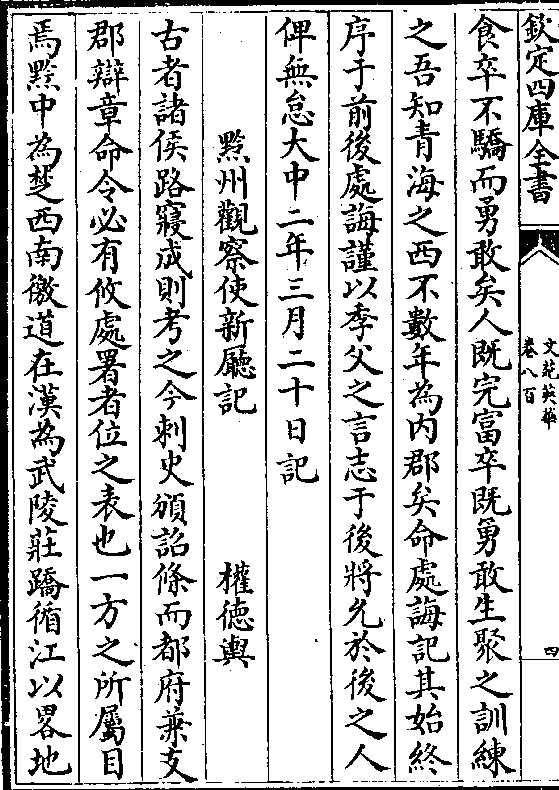 欽定四庫全書
文苑英華
卷八百
四
食卒不驕而勇敢矣人既完富卒既勇敢生聚之訓練
之吾知青海之西不數年為内郡矣命處誨記其始終
序于前後處誨謹以季父之言志于後將允於後之人
俾無怠大中二年三月二十日記
黔州觀察使新㕔記權徳輿
古者諸侯路寢成則考之今刺史頒詔條而都府兼支
郡辯章命令必有攸處署者位之表也一方之所屬目
焉黔中為楚西南徼道在漢為武陵莊蹻循江以畧地